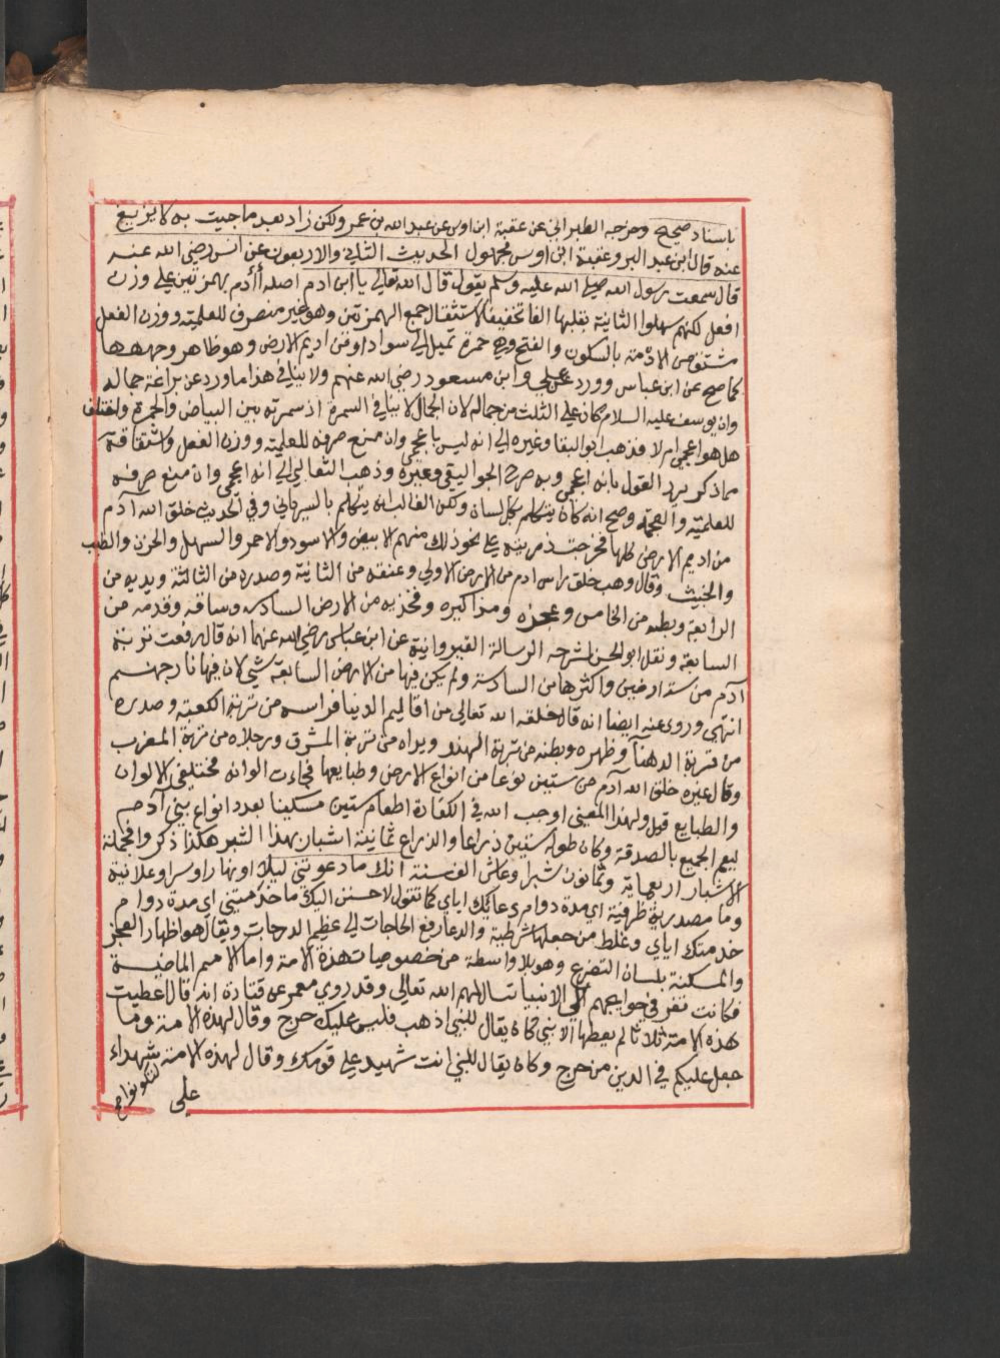 باسناد صحيح وخرجه الطبراني عن عقبة ابن اوس عن عبد الله بن عمر ولكن زاد بعد ما جيت به لا يزيغ
عنه قال ابن عبد البر وعقبة ابن اوس مجهول الحديث الثاني والاربعون عن انس رضي الله عنه
قال سمعت رسول الله صلى الله عليه وسلم يقول قال الله تعالى يا ابن ادم اصله أأدم بهمزتين على وزن
افعل لكنهم سهلوا الثانية بقلبها الفا تخفيفا لاستثقال جمع الهمزتين وهو غير منصرف للعلمية ووزن الفعل
مشتق من الادمة بالسكون والفتح وهي حمرة تميل الى سواد او من اديم الارض وهو ظاهر وجهها
كما صح عن ابن عباس وورد عن علي وابن مسعود رضي الله عنهم ولا ينافي هذا ما ورد عن براعة جماله
وان يوسف عليه السلام كان على الثلث من جماله لان الجمال لا ينافي السمرة اذ سمرته بين البياض والحمرة واختلف
هل هو اعجمي ام لا فذهب ابو البقا وغيره الى انه ليس باعجمي وان منع صرفه للعلمية ووزن الفعل واشتقاقه
مما ذكر يرد القول بانه اعجمي وبه صرح الجواليقي وغيره وذهب الثعالبي الى انه اعجمي وان منع صرفه
للعلمية والعجمة وصح انه كان يتكلم بكل لسان ولكن الغالب انه يتكلم بالسرياني وفي الحديث خلق الله آدم
من اديم الارض كلها فخرجت ذريته على نحو ذلك منهم الابيض والاسود والاحمر والسهل والحزن والطيب
والخبيث وقال وهب خلق راس ادم من الارض الاولي وعنقه من الثانية وصدره من الثالثة ويديه من
الرابعة وبطنه من الخامس وعجزه ومذاكيره وفخذيه من الارض السادسه وساقه وقدمه من
السابعة ونقل ابو الحسن لشرحه الرسالة القيروانية عن ابن عباس رضي الله عنهما انه قال رفعت تربة
آدم من ستة ارضين واكثرها من السادسة ولم يكن فيها من الارض السابعة شي لان فيها نار جهنم
انتهى وروي عنه ايضا انه قال خلقه الله تعالى من اقاليم الدنيا فراسه من تربة الكعبة وصدره
من تربة الدهنآ وظهره وبطنه من تربة الهند ويداه من تربة المشرق ورجلاه من تربة المغرب
وقال غيره خلق الله آدم من ستين نوعا من انواع الارض وطبايعها فجاءت الوانه مختلفي الالوان
والطبايع قيل ولهذا المعنى اوجب الله في الكفارة اطعام ستين مسكينا بعدد انواع بني آدم
ليعم الجميع بالصدقة وكان طوله ستين ذراعا والذراع ثمانية اشبار بهذا الشبر هكذا ذكر وا فجملة
الاشبار اربعماية وثمانون شبرا وعاش الف سنة انك ما دعوتني ليلا او نهارا و سرا وعلانية
وما مصدرية ظرفية اي مدة دوام دعائك اياي كما تقول لاحسنن اليك ما خدمتني اي مدة دوام
خدمتك اياي وغلط من جعلها شرطية والدعا رفع الحاجات الي عظيم الدرجات ويقال هو اظهار العجز
والمسكنة بلسان التضرع وهو بلا واسطة من خصوصيات هذة الامة واما الامم الماضية
فكانت تفزع في حوايجهم الي الانبيا تسال لهم الله تعالى وقد روي معمر عن قتادة انه قال اعطيت
هذه الامة ثلاثا لم يعطها الا نبي كان يقال للنبي اذهب فليس عليك حرج وقال لهذه الامة وما
جعل عليكم في الدين من حرج وكان يقال للنبي انت شهيد على قومك وقال لهذه الامة شهداء
لتكونوا
على